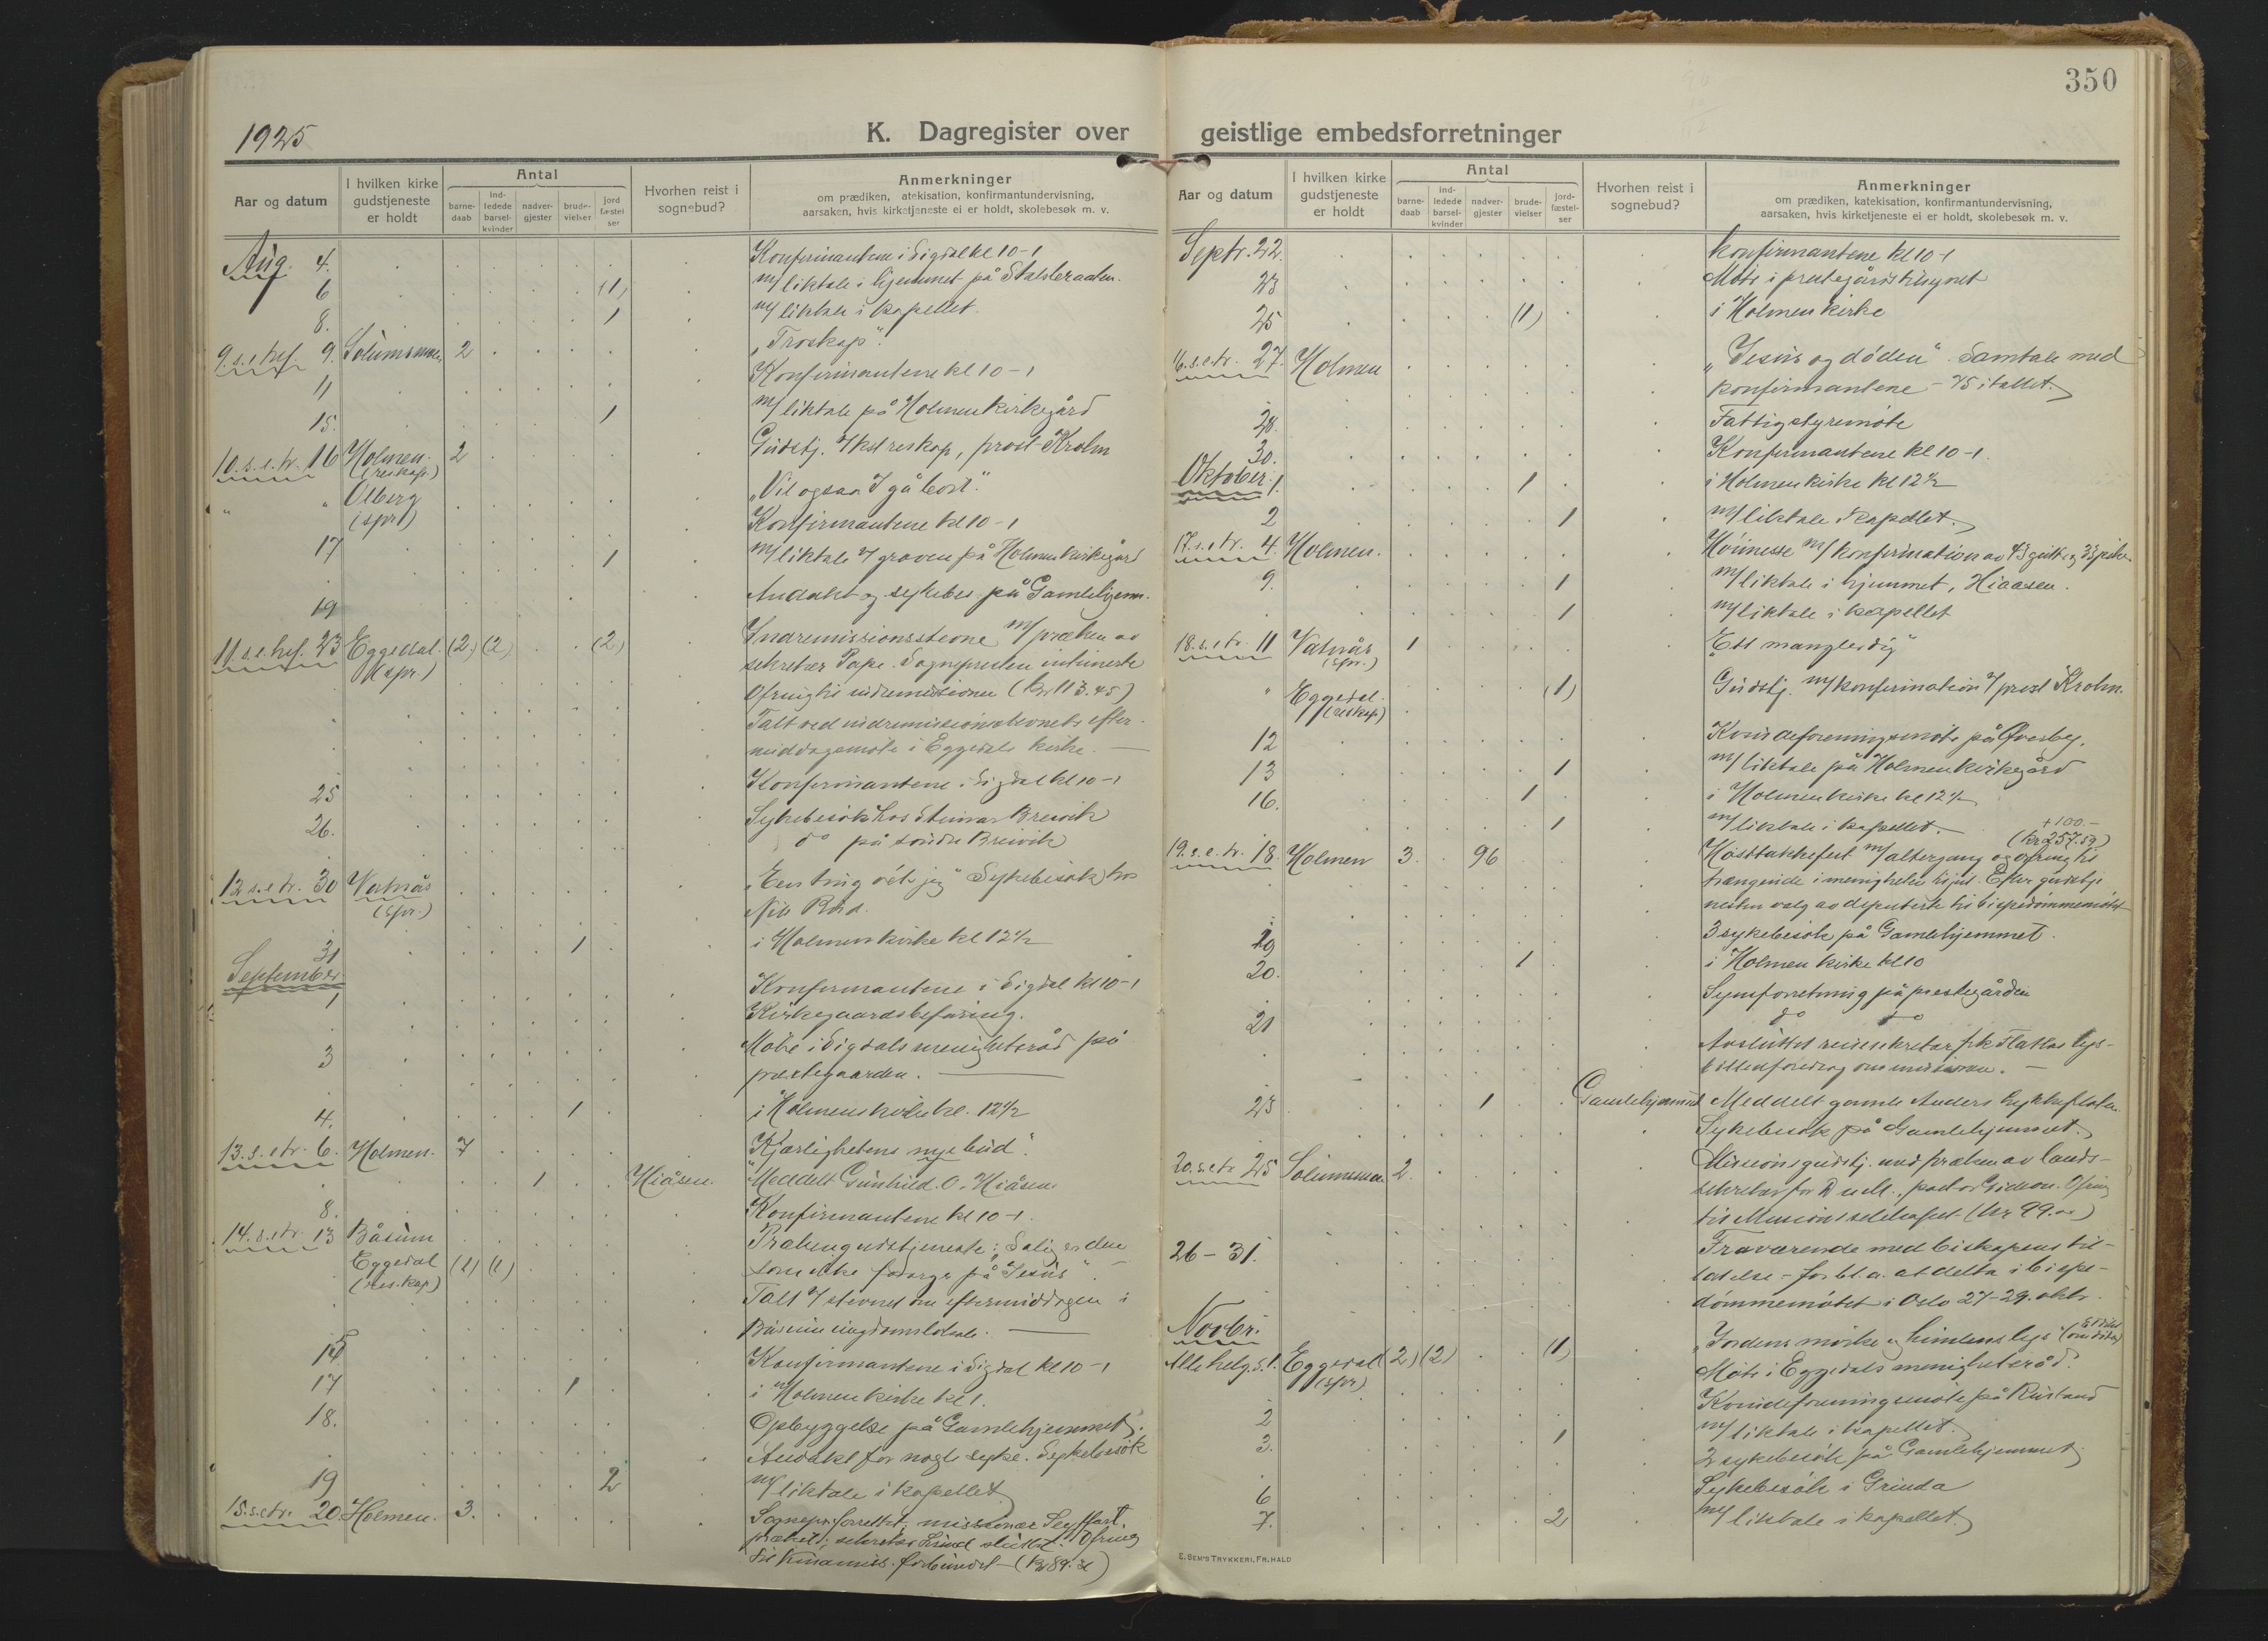 350
1925
K. Dagregister over geistlige embedsforretninger
Aar og datum
I hvilken kirke gudstjeneste er holdt
Antal
barne-daab
ind-ledede barsel-kvinder
nadver-gjester
brude-vielser
jord fæstel ser
Hvorhen reist i sognebud?
Anmerkninger
om prædiken, atekisation, konfirmantundervisning,
aarsaken, hvis kirketjeneste ei er holdt, skolebesøk m. v.
Aug. 4. Konfirmantene i Sigdal kl 10-1
6 (1) m/ liktale i hjemmet på
8. 1 m/ liktale i kapellet.
9. s. e. tref. 9. Solumsmoen 2 „Troskap".
11 Konfirmantene kl 10-1
15. 1 m/ liktale på Holmen kirkegård
10. s. e. tr. 16 Holmen. (reskap.) 2 Gudstj. v/ reskap, prost Krohn
" " Olberg (spr) „Vil ogsaa I gå bort".
17 Konfirmantene kl 10-1
1 m/ liktale v/ graven på Holmen kirkegård
19 Andakt og sykebes. på Gamlehjem.
11. s. e. tref. 23 Eggedal. (spr.) (2) (2) (2) Indremissionsstevne m/ præken av
sekretær Pape. Sognepresten intimerte
Ofring til indremissionen (kr 113.45)
Talt ved indremissionsstevnets efter-
middagsmøte i Eggedals kirke. —
25 Konfirmantene i Sigdal kl 10-1
26. Sykebesøk hos Steinar Breivik
do på søndre Breivik
12 s. e. tr. 30 Vatnås (spr.) „Een ting vet jeg" Sykebesøk hos
Nils
31 1 i Holmen kirke kl 12 1/2
September
1 Konfirmantene i Sigdal kl 10-1
Kirkegaardsbefaring.
3 Møte i Sigdals menighetsråd på
prestegaarden. —
4. 1 i Holmens kirke kl. 12 1/2
13. s. e. tr. 6. Holmen. 7 „Kjærlighetens nye bud".
1 Hiåsen. Meddelt Gunhild O. Hiåsen
8. Konfirmantene kl 10-1.
14. s. e. tr. 13 Båsum Prækengudstjeneste: „Salig er den
Eggedal (res.kap) (1) (1) som ikke forarges på Jesus". —
Talt v/ stevnet om eftermiddagen i
Båsum ungdomslokale. —
15 Konfirmantene i Sigdal kl 10-1
17 1 i Holmen kirke kl 1.
18. Opbyggelse på Gamlehjemmet.
Andakt for nogle syke. Sykebesøk
19 2 m/ liktale i kapellet
15. s. e. tr. 20. Holmen. 3. Sognepr. forrettet; missionær Seyffart.
præket; sekretær Lund sluttet. Ofring
til Kinamis. forbundet — (kr 89.)
Aar og datum
I hvilken kirke gudstjeneste er holdt
Antal
barne-daab
ind-ledede barsel-kvinder
nadver-gjester
brude-vielser
jord-fæstel-ser
Hvorhen reist i sognebud?
Anmerkninger
om prædiken, katekisation, konfirmantundervisning,
aarsaken, hvis kirketjeneste ei er holdt, skolebesøk m. v.
Septr. 22. Konfirmantene kl 10-1
23 Møte i prestegårdstilsynet
25 (1) i Holmen kirke
16. s. e. tr. 27. Holmen „Jesus og døden". Samtale med
konfirmantene - 75 i tallet.
28. Fattigstyremøte
30. Konfirmantene kl 10-1.
Oktober 1. 1 i Holmen kirke kl 12 1/2
2 1 m/ liktale i kapellet.
17. s. e. tr. 4. Holmen. Höimesse m/ konfirmation av gutt. og piker.
9. 1 m/ liktale i hjemmet, Hiaasen.
1 m/ liktale i kapellet
18. s. e. tr. 11 Vatnås (spr.) 1 „Ett mangler dig"
" Eggedal (reskap) (1) Gudstj. m/ konfirmation v/ prost Krohn.
12 Kvindeforeningsmøte på
13 1 m/ liktale på Holmen kirkegård
16. 1 i Holmen kirke kl 12 1/2
1 m/ liktale i kapellet. — + 100.-
19. s. e. tr. 18. Holmen 3. 96 Høsttakkefest m/ altergang og ofring til (kr 257.59)
trængende i menigheten til jul. Efter gudstje
nesten valg av deputerte til bispedømmemøtet
19 3 sykebesøk på Gamlehjemmet.
20. 1 i Holmen kirke kl 10
Synsforretning på prestegården
21 do do
Avsluttet reisesekretær frk Flatlas lys-
billedforedrag om missionen. —
23 1 Gamlehjemmet Meddelt gamle Anders
Sykebesøk på Gamlehjemmet.
20. s. e. tr. 25 Solumsmoen 2. Missionsgudstj. med præken av lands-
sekretær for D. n. M., pastor Gideon. Ofring
til Missionsselskapet (kr 99.)
26-31. Fraværende med biskopens til-
latelse - for bl. a. at delta i bispe-
dømmemøtet i Oslo 27-29. oktr.
Novbr.
Allehelg. s. 1. Eggedal (spr) (2) (2) (1) „Jordens mørke og himlens lys"
Møte i Eggedals menighetsråd.
2 Kvindeforeningsmøte på Rustand
3. 1 m/ liktale i kapellet.
2 sykebesøk på Gamlehjemmet
6 Sykebesøk i Grinda
7. 2 m/ liktale i kapellet.
E. SEM'S TRYKKERI, FR.HALD